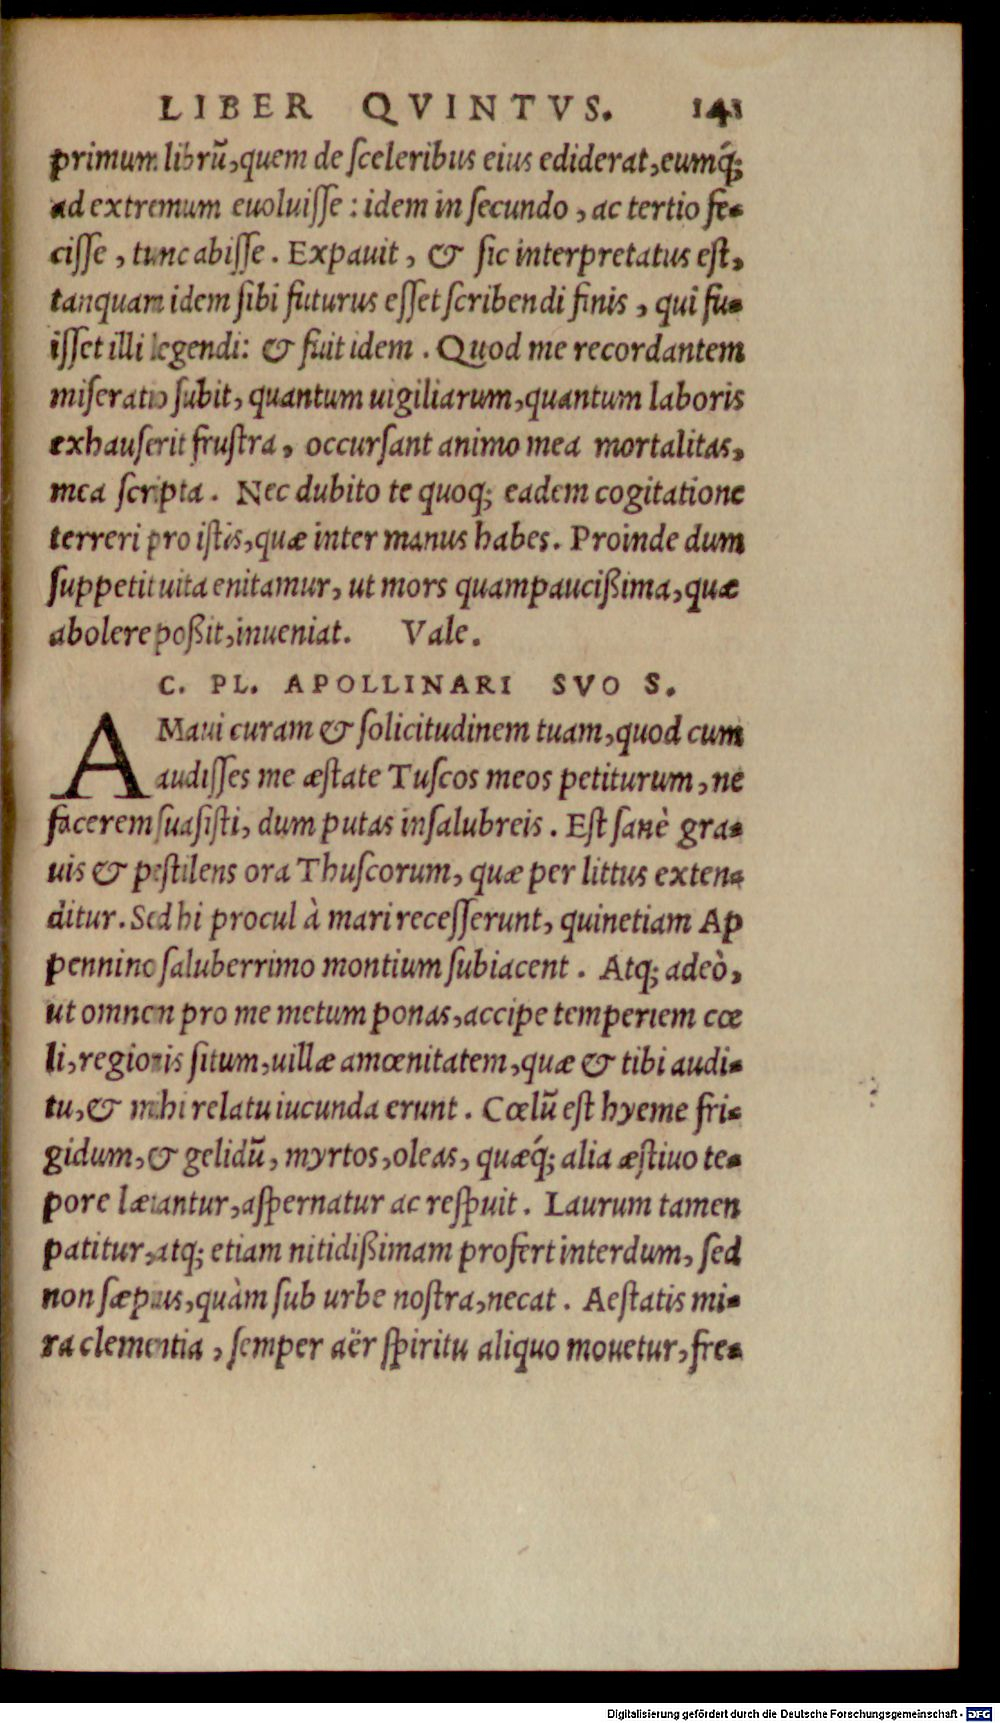 LIBER QVINTVS. 141
primum librũ, quem de sceleribus eius ediderat, eumq́;
ad extremum euoluisse: idem in secundo, ac tertio fe-
cisse, tunc abisse. Expauit, & sic interpretatus est,
tanquam idem sibi futurus esset scribendi finis, qui fu-
isset illi legendi: & fuit idem. Quod me recordantem
miseratio subit, quantum uigiliarum, quantum laboris
exhauserit frustra, occursant animo mea mortalitas,
mea scripta. Nec dubito te quoq; eadem cogitatione
terreri pro istis, quæ inter manus habes. Proinde dum
suppetit uita enitamur, ut mors quampaucißima, quæ
abolere poßit, inueniat. Vale.
C. PL. APOLLINARI SVO S.
AMaui curam & solicitudinem tuam, quod cum
audisses me æstate Tuscos meos petiturum, ne
facerem suasisti, dum putas insalubreis. Est sanè gra-
uis & pestilens ora Thuscorum, quæ per littus exten-
ditur. Sed hi procul à mari recesserunt, quinetiam Ap
pennino saluberrimo montium subiacent. Atq; adeò,
ut omnen pro me metum ponas, accipe temperiem cœ
li, regionis situm, uillæ amœnitatem, quæ & tibi audi-
tu, & mihi relatu iucunda erunt. Cœlũ est hyeme fri-
gidum, & gelidũ, myrtos, oleas, quæq́; alia æstiuo te-
pore lætantur, aspernatur ac respuit. Laurum tamen
patitur, atq; etiam nitidißimam profert interdum, sed
non sæpius, quàm sub urbe nostra, necat. Aestatis mi-
ra clementia, semper aër spiritu aliquo mouetur, fre-
Digitalisierung gefördert durch die Deutsche Forschungsgemeinschaft - DFG